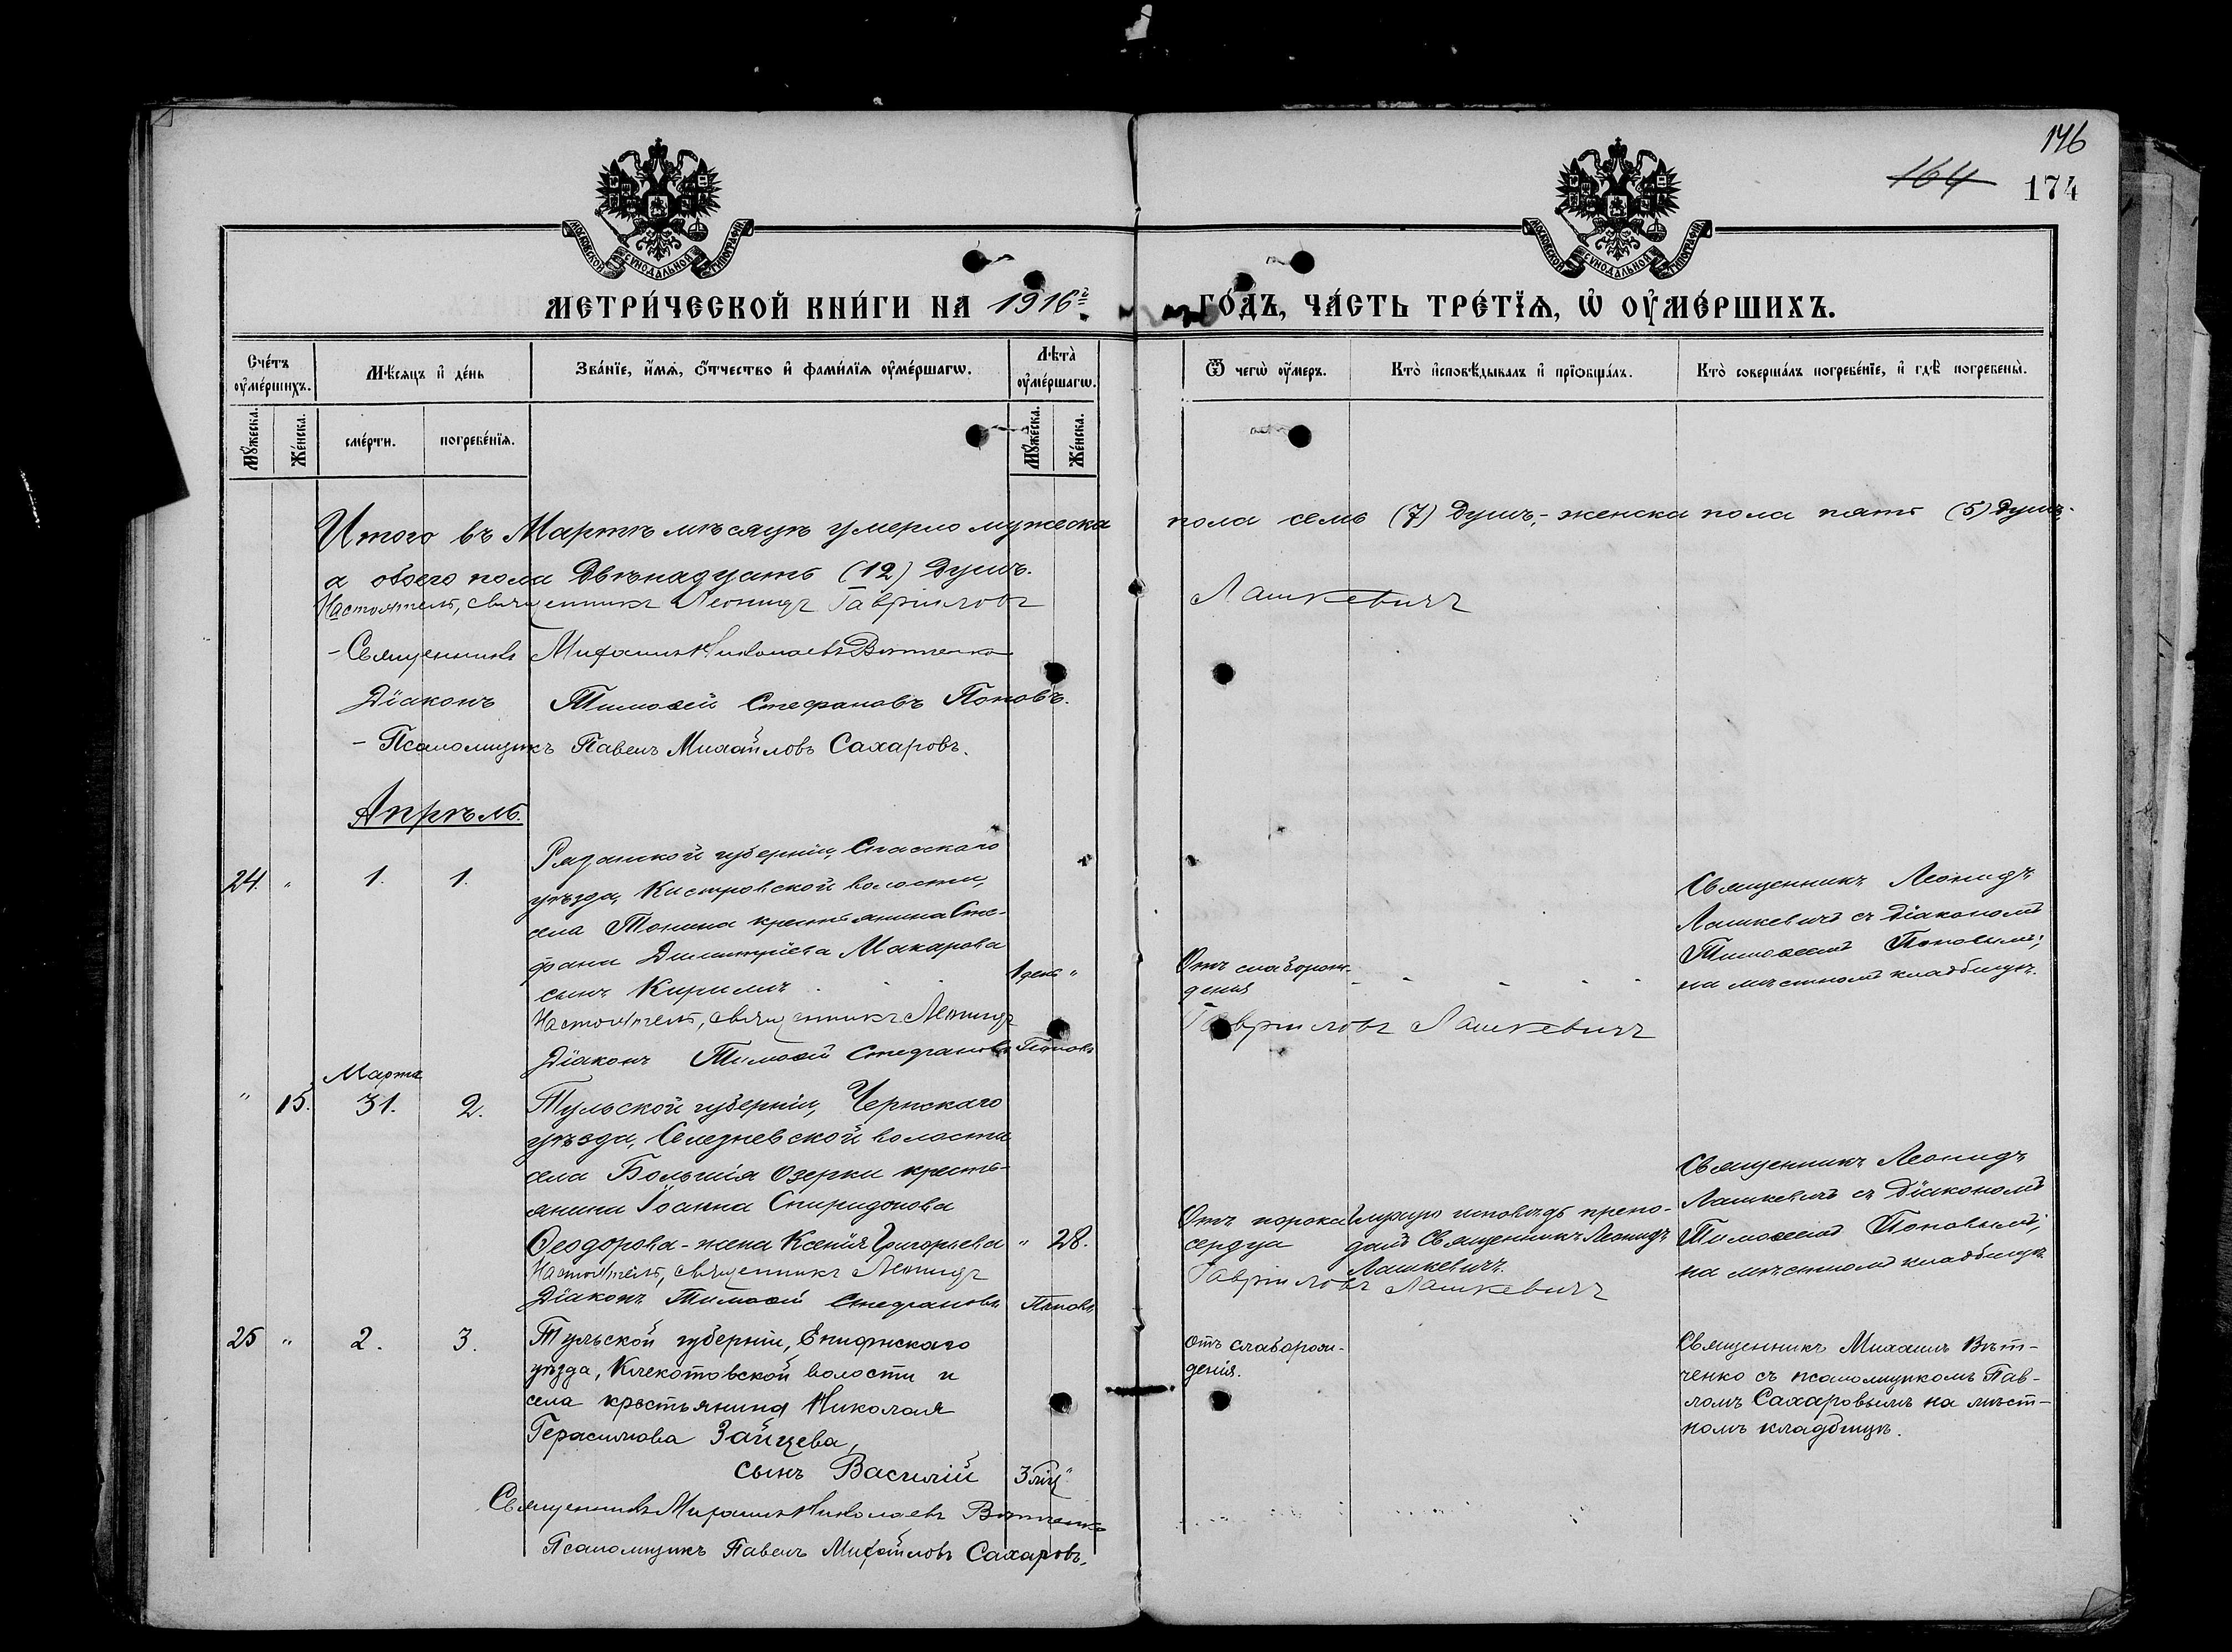 146
164
174
МОСКОВСКОЙ СѴНОДАЛЬНОЙ ТИПОГРАФІИ
МОСКОВСКОЙ СѴНОДАЛЬНОЙ ТИПОГРАФІИ
МЕТРИ́ЧЕСКОЙ КНИ́ГИ НА 1916 г̀ ГО́ДЪ, ЧА́СТЬ ТРЕ́ТЇѦ, Ѡ҆ ОУ҆МЕ́РШИХЪ.
Сче́тъ оу҆ме́ршихъ.
Мѣ́сѧцъ и҆ де́нь
Зва́нїе, и҆́мѧ, ѻ҆́тчество и҆ фами́лїѧ оу҆ме́ршагѡ.
Лѣ́та оу҆ме́ршагѡ.
Ѿ чегѡ̀ оу҆́меръ.
Кто̀ и҆сповѣ́дывалъ и҆ прїѡбща́лъ.
Кто̀ соверша́лъ погребе́нїе, и҆ гдѣ̀ погребены̀.
Мꙋ́жеска.
Же́нска.
сме́рти.
погребе́нїѧ.
Мꙋ́жеска.
Же́нска.
Итого въ Мартѣ мѣсяцѣ умерло мужеска пола семь (7) душъ,- женска пола пять (5) душъ.
а обоего пола двѣнадцать (12) душъ.
Настоятель, священникъ Леонидъ Гавріиловъ Лашкевичъ
- Священникъ Михаилъ Николаевъ Вѣтченко
Діаконъ Тимоѳей Стефановъ Поповъ.
- Псаломщикъ Павелъ Михайловъ Сахаровъ.
Апрѣль.
24. " 1. 1.
Рязанской губерніи, Спасскаго
уѣзда, Кистровской волости,
села Тонина крестьянина Сте-
фана Димитріева Макарова
сынъ Кириллъ
1 день "
Отъ слаборож-
денія
Священникъ Леонидъ
Лашкевичъ съ діакономъ
Тимоѳеемъ Поповымъ;
на мѣстномъ кладбищѣ.
Настоятель, священникъ Леонидъ Гавріиловъ Лашкевичъ
Діаконъ Тимоѳей Стефановъ Поповъ
Марта
" 15. 31. 2.
Тульской губерніи, Чернскаго
уѣзда, Селезневской волости
села Большія Озерки кресть-
янина Іоанна Спиридонова
Ѳеодорова - жена Ксенія Григорьева
" 28.
Отъ порока
сердца
исповѣдь препо-
далъ Священникъ Леонидъ
Лашкевичъ
Священникъ Леонидъ
Лашкевичъ съ діакономъ
Тимоѳеемъ Поповымъ;
на мѣстномъ кладбищѣ
Настоятель, священникъ Леонидъ Гавріиловъ Лашкевичъ
Діаконъ Тимоѳей Стефановъ Поповъ
25 " 2. 3.
Тульской губерніи, Епифнскаго
уѣзда, Клекотовской волости и
села крестьянина Николая
Герасимова Зайцева,
сынъ Василій
3 мѣц "
отъ слаборож-
денія.
Священникъ Михаилъ Вѣт-
ченко съ псаломщикомъ Пав-
ломъ Сахаровымъ на мѣст-
номъ кладбищѣ.
Священникъ Михаилъ Николаевъ Вѣтченко
Псаломщикъ Павелъ Михайловъ Сахаровъ.